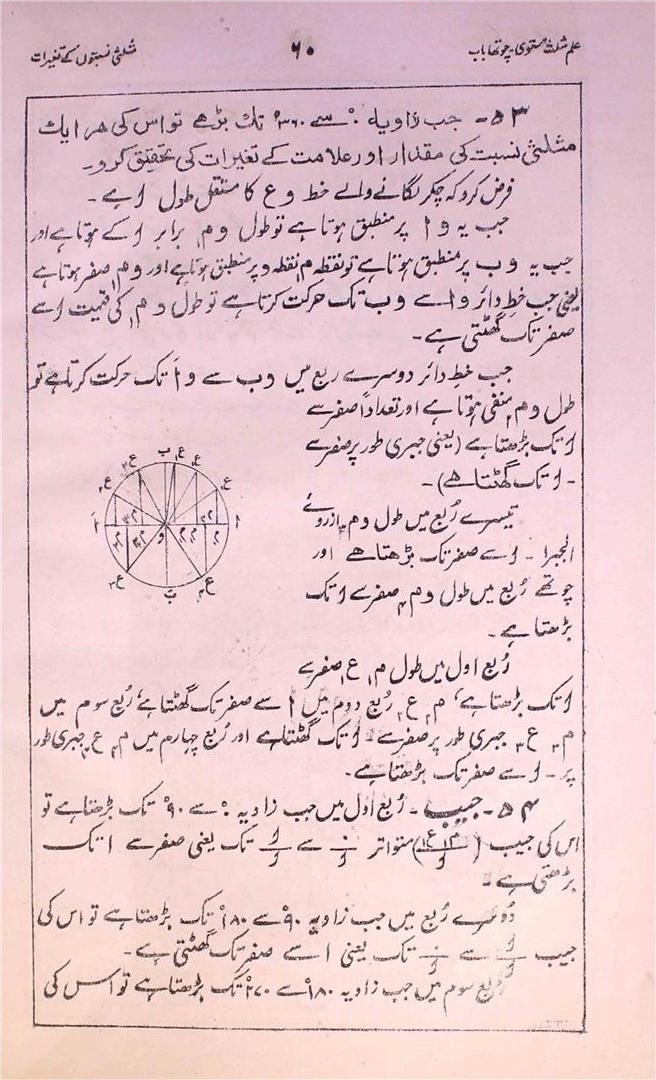 علم مثلث مستوی۔ چوتھا باب
۶۰
مثلثی نسبتوں کے تغیرات
۵۳۔ جب زاویہ ۰° سے ۳۶۰° تک بڑھے تو اس کی ہر ایک
مثلثی نسبت کی مقدار اور علامت کے تغیرات کی تحقیق کرو۔
فرض کرو کہ چکر لگانے والے خط و ع کا مستقل طول ا ہے۔
جب یہ و ا پر منطبق ہوتا ہے تو طول و م۱ برابر ا کے ہوتا ہے اور
جب یہ و ب پر منطبق ہوتا ہے تو نقطہ م نقطہ و پر منطبق ہوتا ہے اور و م۱ صفر ہوتا ہے
یعنی جب خط دائر و ا سے و ب تک حرکت کرتا ہے تو طول و م۱ کی قیمت ا سے
صفر تک گھٹتی ہے۔
جب خط دائر دوسرے ربع میں و ب سے و اَ تک حرکت کرتا ہے تو
طول و م۲ منفی ہوتا ہے اور تعداداً صفر سے
ا تک بڑھتا ہے (یعنی جبری طور پر صفر سے
۔ ا تک گھٹتا ہے)۔
تیسرے رُبع میں طول و م۳ ازروئے
الجبرا ۔ ا سے صفر تک بڑھتا ہے اور
چوتھے رُبع میں طول و م۴ صفر سے ا تک
بڑھتا ہے۔
ب
ا
اَ
و
بَ
رُبع اول میں طول م۱ ع۱ صفر سے
ا تک بڑھتا ہے، م۲ ع۲ رُبع دوم میں ا سے صفر تک گھٹتا ہے، رُبع سوم میں
م۳ ع۳ جبری طور پر صفر سے ۔ ا تک گھٹتا ہے اور رُبع چہارم میں م۴ ع۴ جبری طور
پر ۔ ا سے صفر تک بڑھتا ہے۔
۵۴۔ جیب۔ رُبع اول میں جب زاویہ ۰° سے ۹۰° تک بڑھتا ہے تو
اس کی جیب (م۱ ع۱/ا) متواتر ۰/ا سے ا/ا تک یعنی صفر سے ا تک
بڑھتی ہے۔
دوسرے رُبع میں جب زاویہ ۹۰° سے ۱۸۰° تک بڑھتا ہے تو اس کی
جیب ا/ا سے ۰/ا تک یعنی ا سے صفر تک گھٹتی ہے۔
رُبع سوم میں جب زاویہ ۱۸۰° سے ۲۷۰° تک بڑھتا ہے تو اس کی